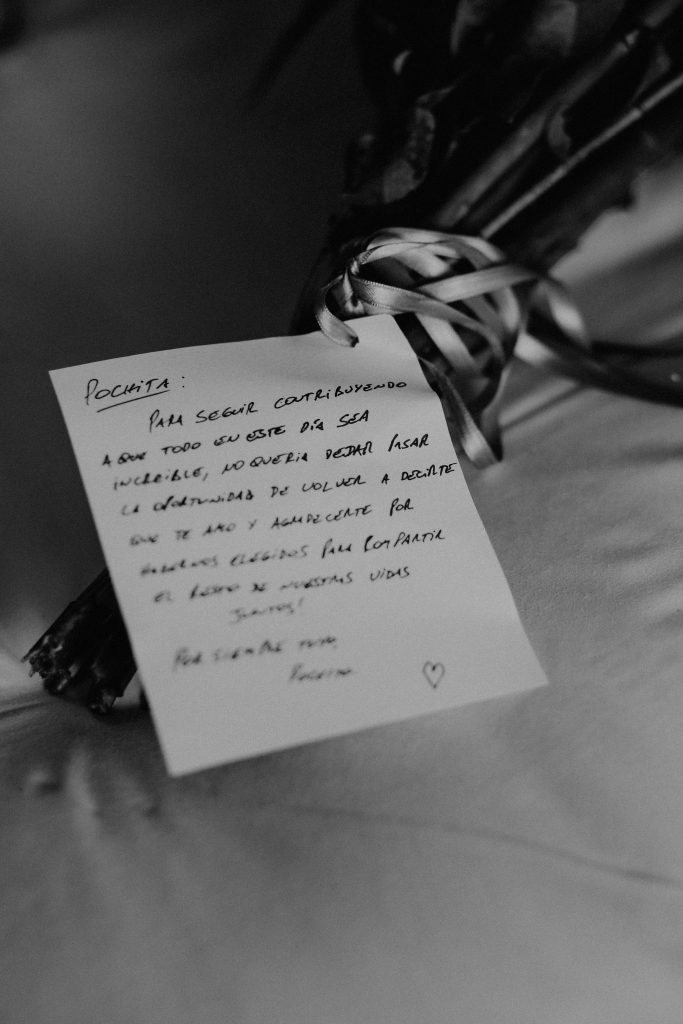 POCHITA:
PARA SEGUIR CONTRIBUYENDO
A QUE TODO EN ESTE DÍA SEA
INCREIBLE, NO QUERIA DEJAR PASAR
LA OPORTUNIDAD DE VOLVER A DECIRTE
QUE TE AMO Y AGRADECERTE POR
HABERNOS ELEGIDOS PARA COMPARTIR
EL RESTO DE NUESTRAS VIDAS
JUNTOS!
POR SIEMPRE TUYO,